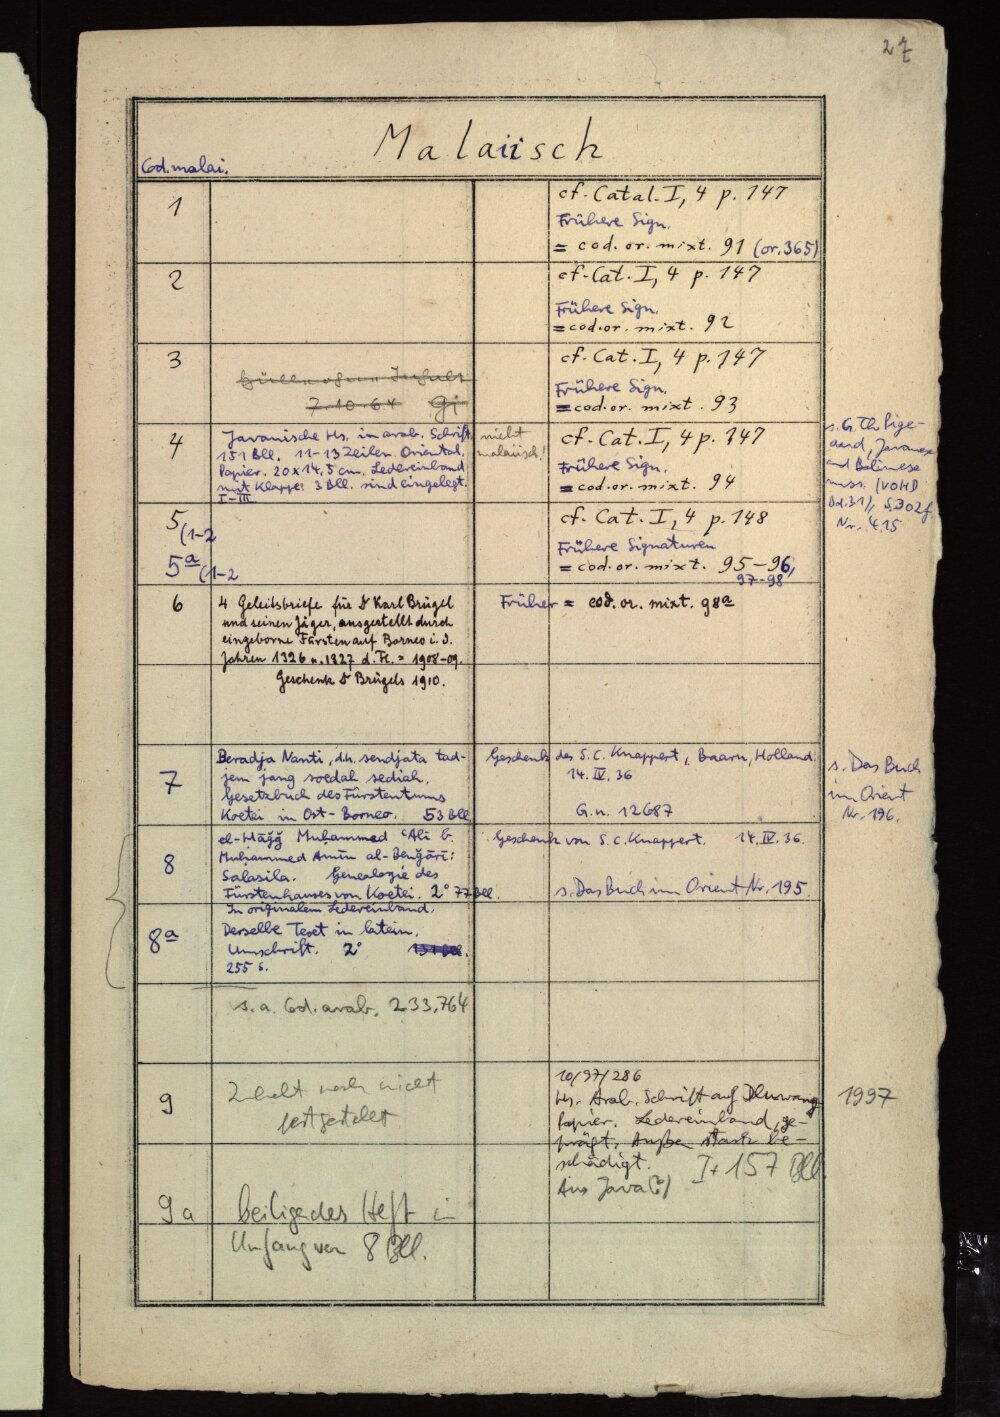 27
Malaiisch
Cod. malai.
1
cf. Catal. I, 4 p. 147
Frühere Sign.
= cod. or. mixt. 91 (or. 365)
2
cf. Cat. I, 4 p. 147
Frühere Sign.
= cod. or. mixt. 92
3
Hülle ohne Inhalt
7.10.64 Gj
cf. Cat. I, 4 p. 147
Frühere Sign.
= cod. or. mixt. 93
4
Javanische Hs. in arab. Schrift.
151 Bll. 11-13 Zeilen. Oriental.
Papier. 20 x 14,5 cm. Ledereinband
mit Klappe. 3 Bll. sind eingelegt.
I-III
nicht
malaiisch!
cf. Cat. I, 4 p. 147
Frühere Sign.
= cod. or. mixt. 94
s. G. Th. Pige-
aud, Javanese
and Balinese
mss. (VOHD
Bd. 31), S. 302f
Nr. 415
5 (1-2
5a (1-2
cf. Cat. I, 4 p. 148
Frühere Signaturen
= cod. or. mixt. 95-96,
97-98
6
4 Geleitsbriefe für Dr Karl Brügel
und seinen Jäger, ausgestellt durch
eingeborne Fürsten auf Borneo i. d.
Jahren 1326 u. 1327 d. Fl. = 1908-09.
Geschenk Dr Brügels 1910.
Früher = cod. or. mixt. 98a
7
Beradja Nanti, dh. sendjata tad-
jem jang soedah sediah.
Gesetzbuch des Fürstentums
Koetei in Ost-Borneo. 53 Bll
Geschenk des S. C. Knappert, Baarn, Holland.
14. IV. 36
G.n. 12687
s. Das Buch
im Orient
Nr. 196.
8
el-Ḥāǧǧ Muḥammed ʿAli b.
Muḥammed Amīn al-Benǧārī:
Salasila. Genealogie des
Fürstenhauses von Koetei. 2° 77 Bll.
In originalem Ledereinband.
Geschenk von S. C. Knappert. 14. IV. 36.
s. Das Buch im Orient Nr. 195.
8a
Derselbe Text in latein.
Umschrift. 2° 131 Bll.
255 S.
s. a. Cod. arab. 233, 764
9
Inhalt noch nicht
festgestellt
10/97/286
Hs. Arab. Schrift auf Dluwang
Papier. Ledereinband, ge-
prägt. Außen stark be-
schädigt.
Aus Java (?)
I + 157 Bll.
1997
9a
beiligendes Heft in
Umfang von 8 Bll.